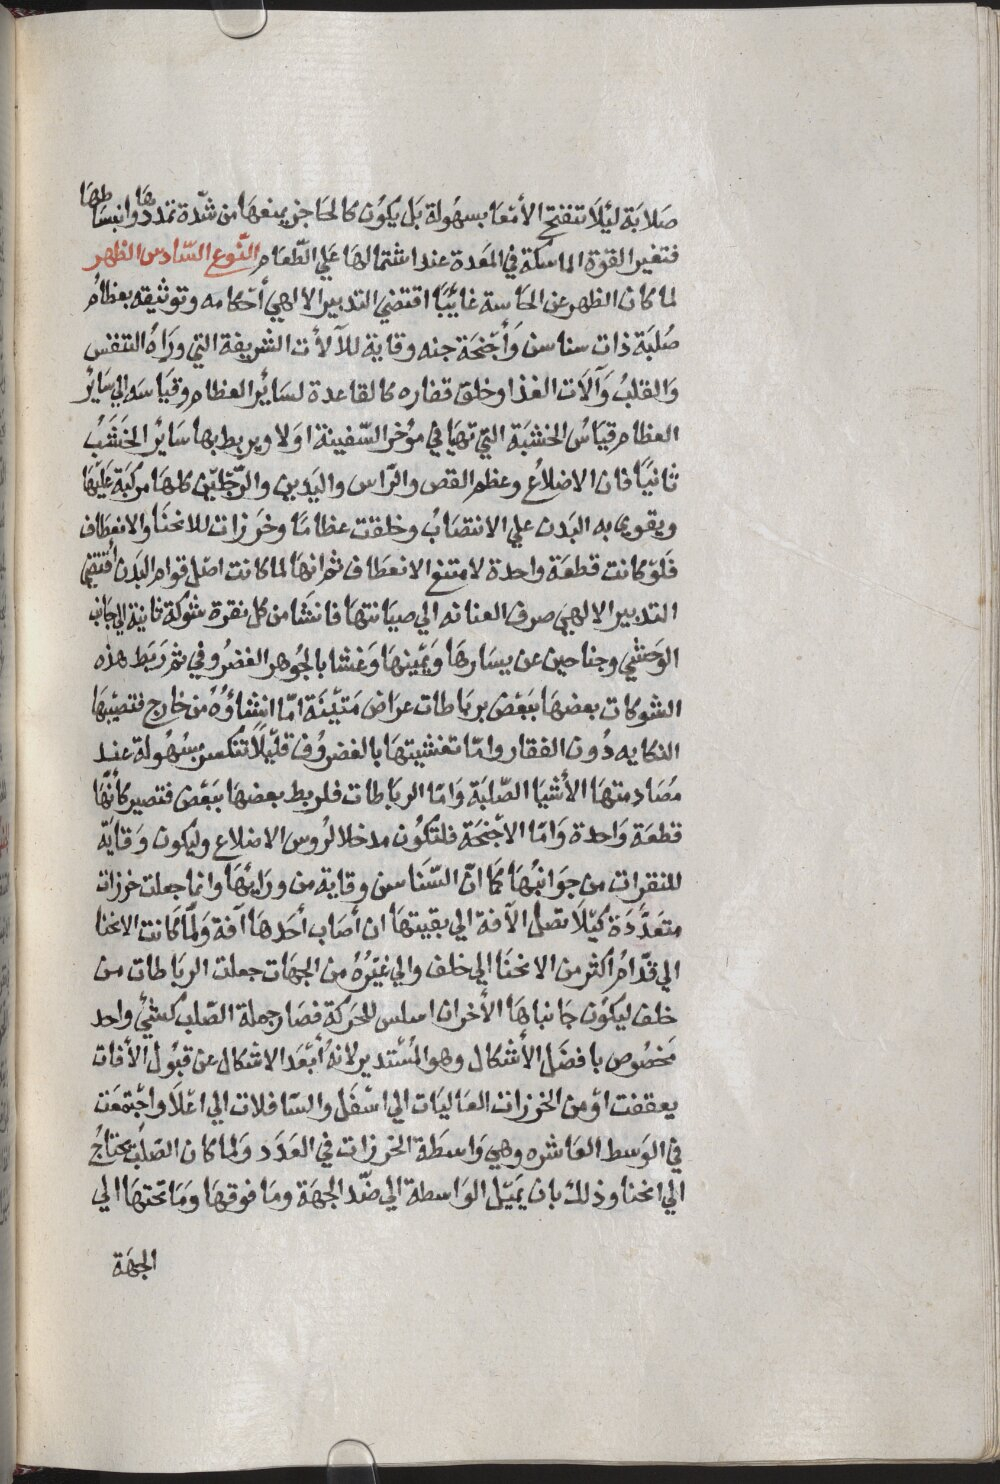 صلابة ليلا تنفتح الأمعا بسهولة بل يكون كالحاجز يمنعها من شدة تمددها وانبساطها
فتغير القوة الماسكة في المعدة عند اشتمالها علي الطعام النوع السادس الظهر
لما كان الظهر عن الحاسة غايبًا اقتضي التدبير الالهي أحكامه وتوثيقه بعظام
صُلبَة ذات سناسن وَأجنحَة جنه وقاية للآلأت الشريفة التي ورَاهُ التنفس
وَالقلبُ وَآلاَت الغذا وخلق قفاره كالقاعدة لسَايُر العظام وقيَاسَه الي سَايُر
العظام قيَاسُ الخشبَة التي تهيَا في مؤخر السّفينة اولا ويربط بها سَايُر الخشَبُ
ثانيَا فان الاضلاُع وعظم القص والرّاس واليَدين والرّجلين كلهَا مركبَة عَليهَا
ويقوي به البَدن علي الانتصَابُ وخلقت عظامًا وخرَزات للانحنَا والانعطَاف
فلو كانت قطعَة واحدة لامتنع الانعطَاف ثم انهَا لما كانت اصل قوام البَدن أقتضي
التدبير الالهي صرف العنانه الي صيانتهَا فانشَا من كل نقرة شوكة ناتية الي جانب
الوَحشي وجناحين عن يسَارهَا وَيمينهَا وَغشا بالجوهر الغضرُوفي ثم رَبَط هذه
الشوكات بعضهَا ببَعض برباطات عراض مَتينَة امّا انشاؤُهُ من خارج فتصيبهَا
النكايه دُون الفقار وامّا تغشيتهَا بالغضرُوف قليلًا تنكسر بسُهُولة عند
مصَادمتهَا الأشيَا الصّلبَة وَامّا الربَاطات فلربط بعضهَا ببَعض فتصير كأنّهَا
قطعَة وَاحدة وَامّا الأجنحَة فلتكوُن مدخلا لرُوس الاضلاع وليكون وَقايَة
للنقرات من جوَانبُهَا كَمَا انّ السّنَاسن وقاية من ورَائهَا وانما جعلت خرزات
متعَدَّدَة كيَلاَ تصَل الآفة الي بقيتهَا ان أصَاب أحَدهَا آفة وَلَمّا كَانت الانحنا
الي قدّامُ أكثر من الانحنَا الي خلف والي غيُرهُ من الجهَات جعلت الربَاطات من
خلف ليكوُن جَانباهَا الأخران اسلس للحَركة فصَار جملة الصّلب كشئ واحد
مَخصُوص بافضَل الأشكال وهو المُستدير لانهُ أبْعَد الاشكال عن قبُول الأفات
يعقفت اوّمن الخرزات العَاليَات الي اسْفَل والسّافلات الي اعْلاَ واجتمَعَت
في الوَسط العَاشره وهي وَاسطَة الخرزات في العَدَد وَلما كان الصّلبُ يحتاجُ
الي انحنا وذلك بان يَميل الوَاسطة الي ضّد الجهَة وما فوقهَا وَمَا تحتهَا الي
الجهَة